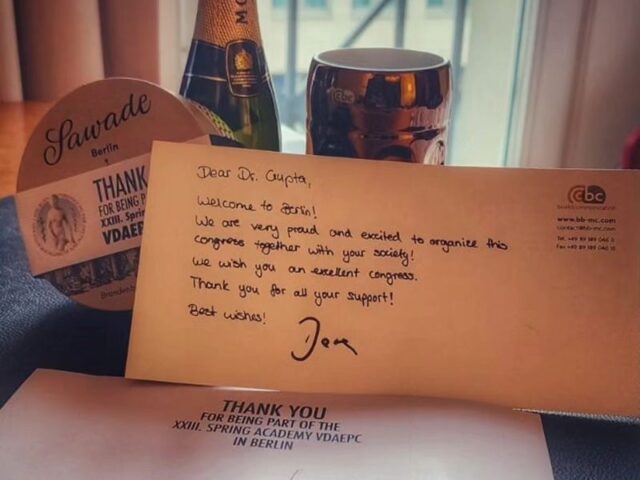 Sawade
Berlin
THANK
FOR BEING PAR
XXIII. Spring
VDAEP
Brandenb
cbc
Dear Dr. Gupta,
Welcome to Berlin!
We are very proud and excited to organize this
congress together with your society!
We wish you an excellent congress.
Thank you for all your support!
Best wishes!
cbc
www.bb-mc.com
contact@bb-mc.com
THANK YOU
FOR BEING PART OF THE
XXIII. SPRING ACADEMY VDAEPC
IN BERLIN